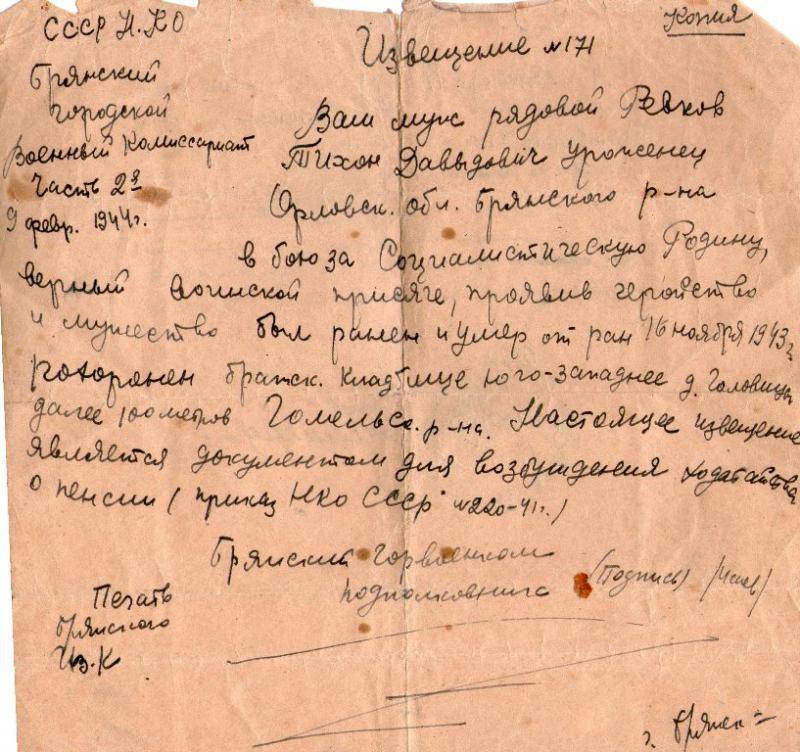 Копия
СССР Н.КО
Извещение №171
Брянский
городской
Военный Комиссариат
Часть 2я
9 февр. 1944г.
Ваш муж рядовой Ревков
Тихон Давыдович уроженец
Орловск. обл. Брянского р-на
в бою за Социалистическую Родину,
верный воинской присяге, проявив геройство
и мужество был ранен и умер от ран 16 ноября 1943г.
похоронен братск. кладбище юго-западнее д. Головицы
далее 100 метров Гомельск. р-на. Настоящее извещение
является документом для возбуждения ходатайства
о пенсии (приказ НКО СССР №220-41г.)
Брянский Горвоенком
подполковник (Подпись)
Печать
Брянского
г. Брянск =